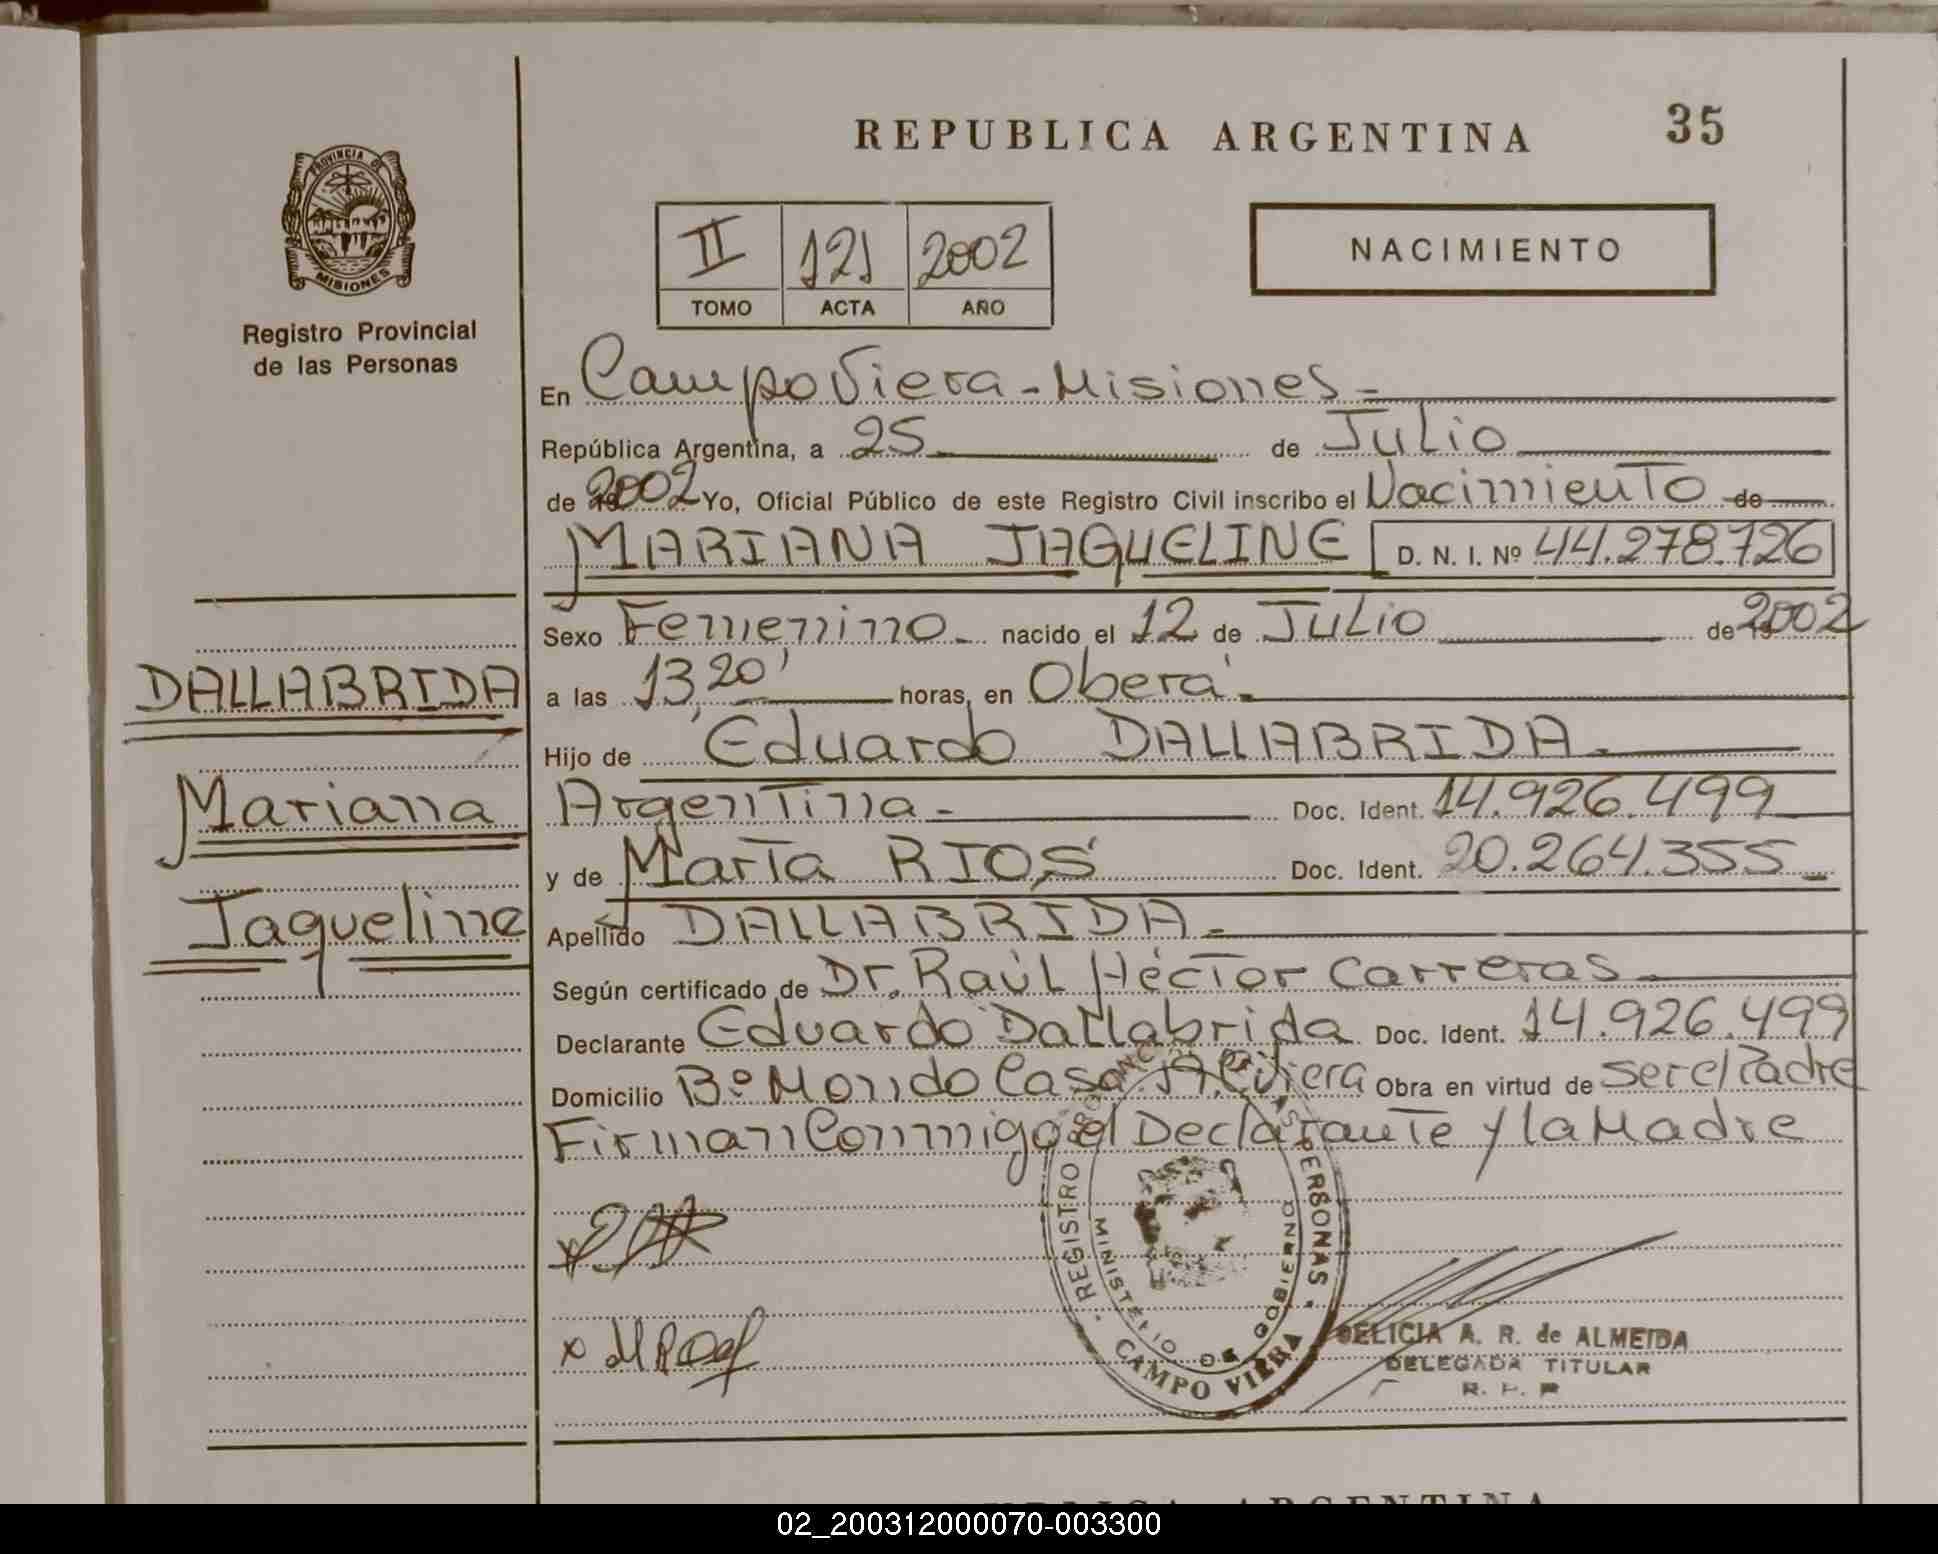 REPUBLICA ARGENTINA
35
PROVINCIA DE
MISIONES
Registro Provincial
de las Personas
II 121 2002
TOMO ACTA AÑO
NACIMIENTO
En Campo Viera - Misiones -
República Argentina, a 25 de Julio
de 2002 Yo, Oficial Público de este Registro Civil inscribo el Nacimiento de
MARIANA JAQUELINE D. N. I. Nº 44.278.726
Sexo Femenino nacido el 12 de Julio de 2002
DALLABRIDA
a las 13,20' horas, en Oberá
Hijo de Eduardo DALLABRIDA
Mariana
Argentina Doc. Ident. 14.926.499
y de Marta RIOS Doc. Ident. 20.264.355
Jaqueline
Apellido DALLABRIDA
Según certificado de Dr. Raúl Héctor Carreras
Declarante Eduardo Dallabrida Doc. Ident. 14.926.499
Domicilio Bº Mondo Casa Viera Obra en virtud de ser el Padre
Firman Conmigo el Declarante y la Madre
REGISTRO PERSONAS
MINISTERIO DE GOBIERNO
CAMPO VIERA
DELICIA A. R. de ALMEIDA
DELEGADA TITULAR
ARGENTINA
02_200312000070-003300